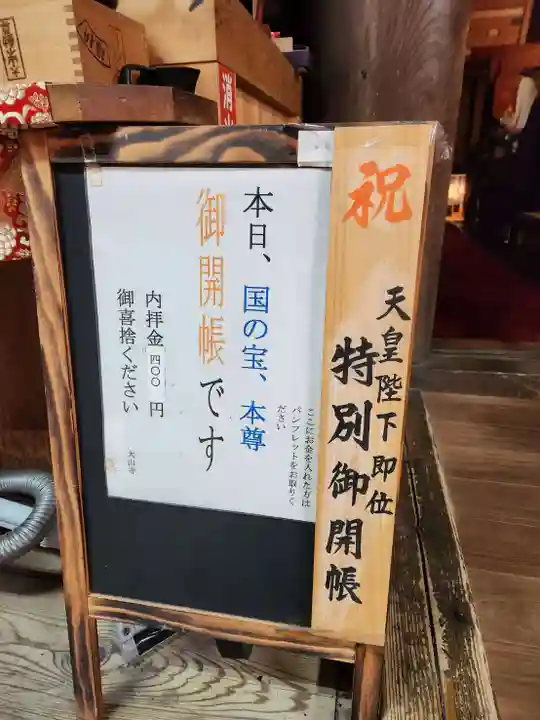 祝
天皇陛下即位
特別御開帳
本日、国の宝、本尊
御開帳です
ここにお金を入れた方は
パンフレットをお取りく
ださい
内拝金四〇〇円
御喜捨ください
大山寺
消火